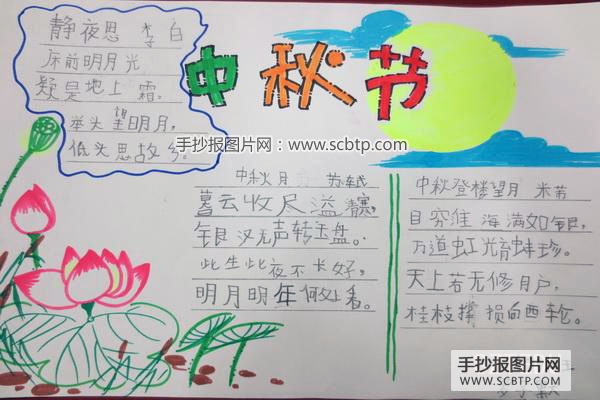 中秋节
静夜思 李白
床前明月光
疑是地上 霜。
举头望明月,
低头思故乡。
手抄报图片网:www.scbtp.com
中秋月 苏轼
暮云收尽溢清寒,
银汉无声转玉盘。
此生此夜不长好,
明月明年何处看。
中秋登楼望月 米芾
目穷淮海满如银,
万道虹光育蚌珍。
天上若无修月户,
桂枝撑损向西轮。
手抄报图片网
WWW.SCBTP.COM